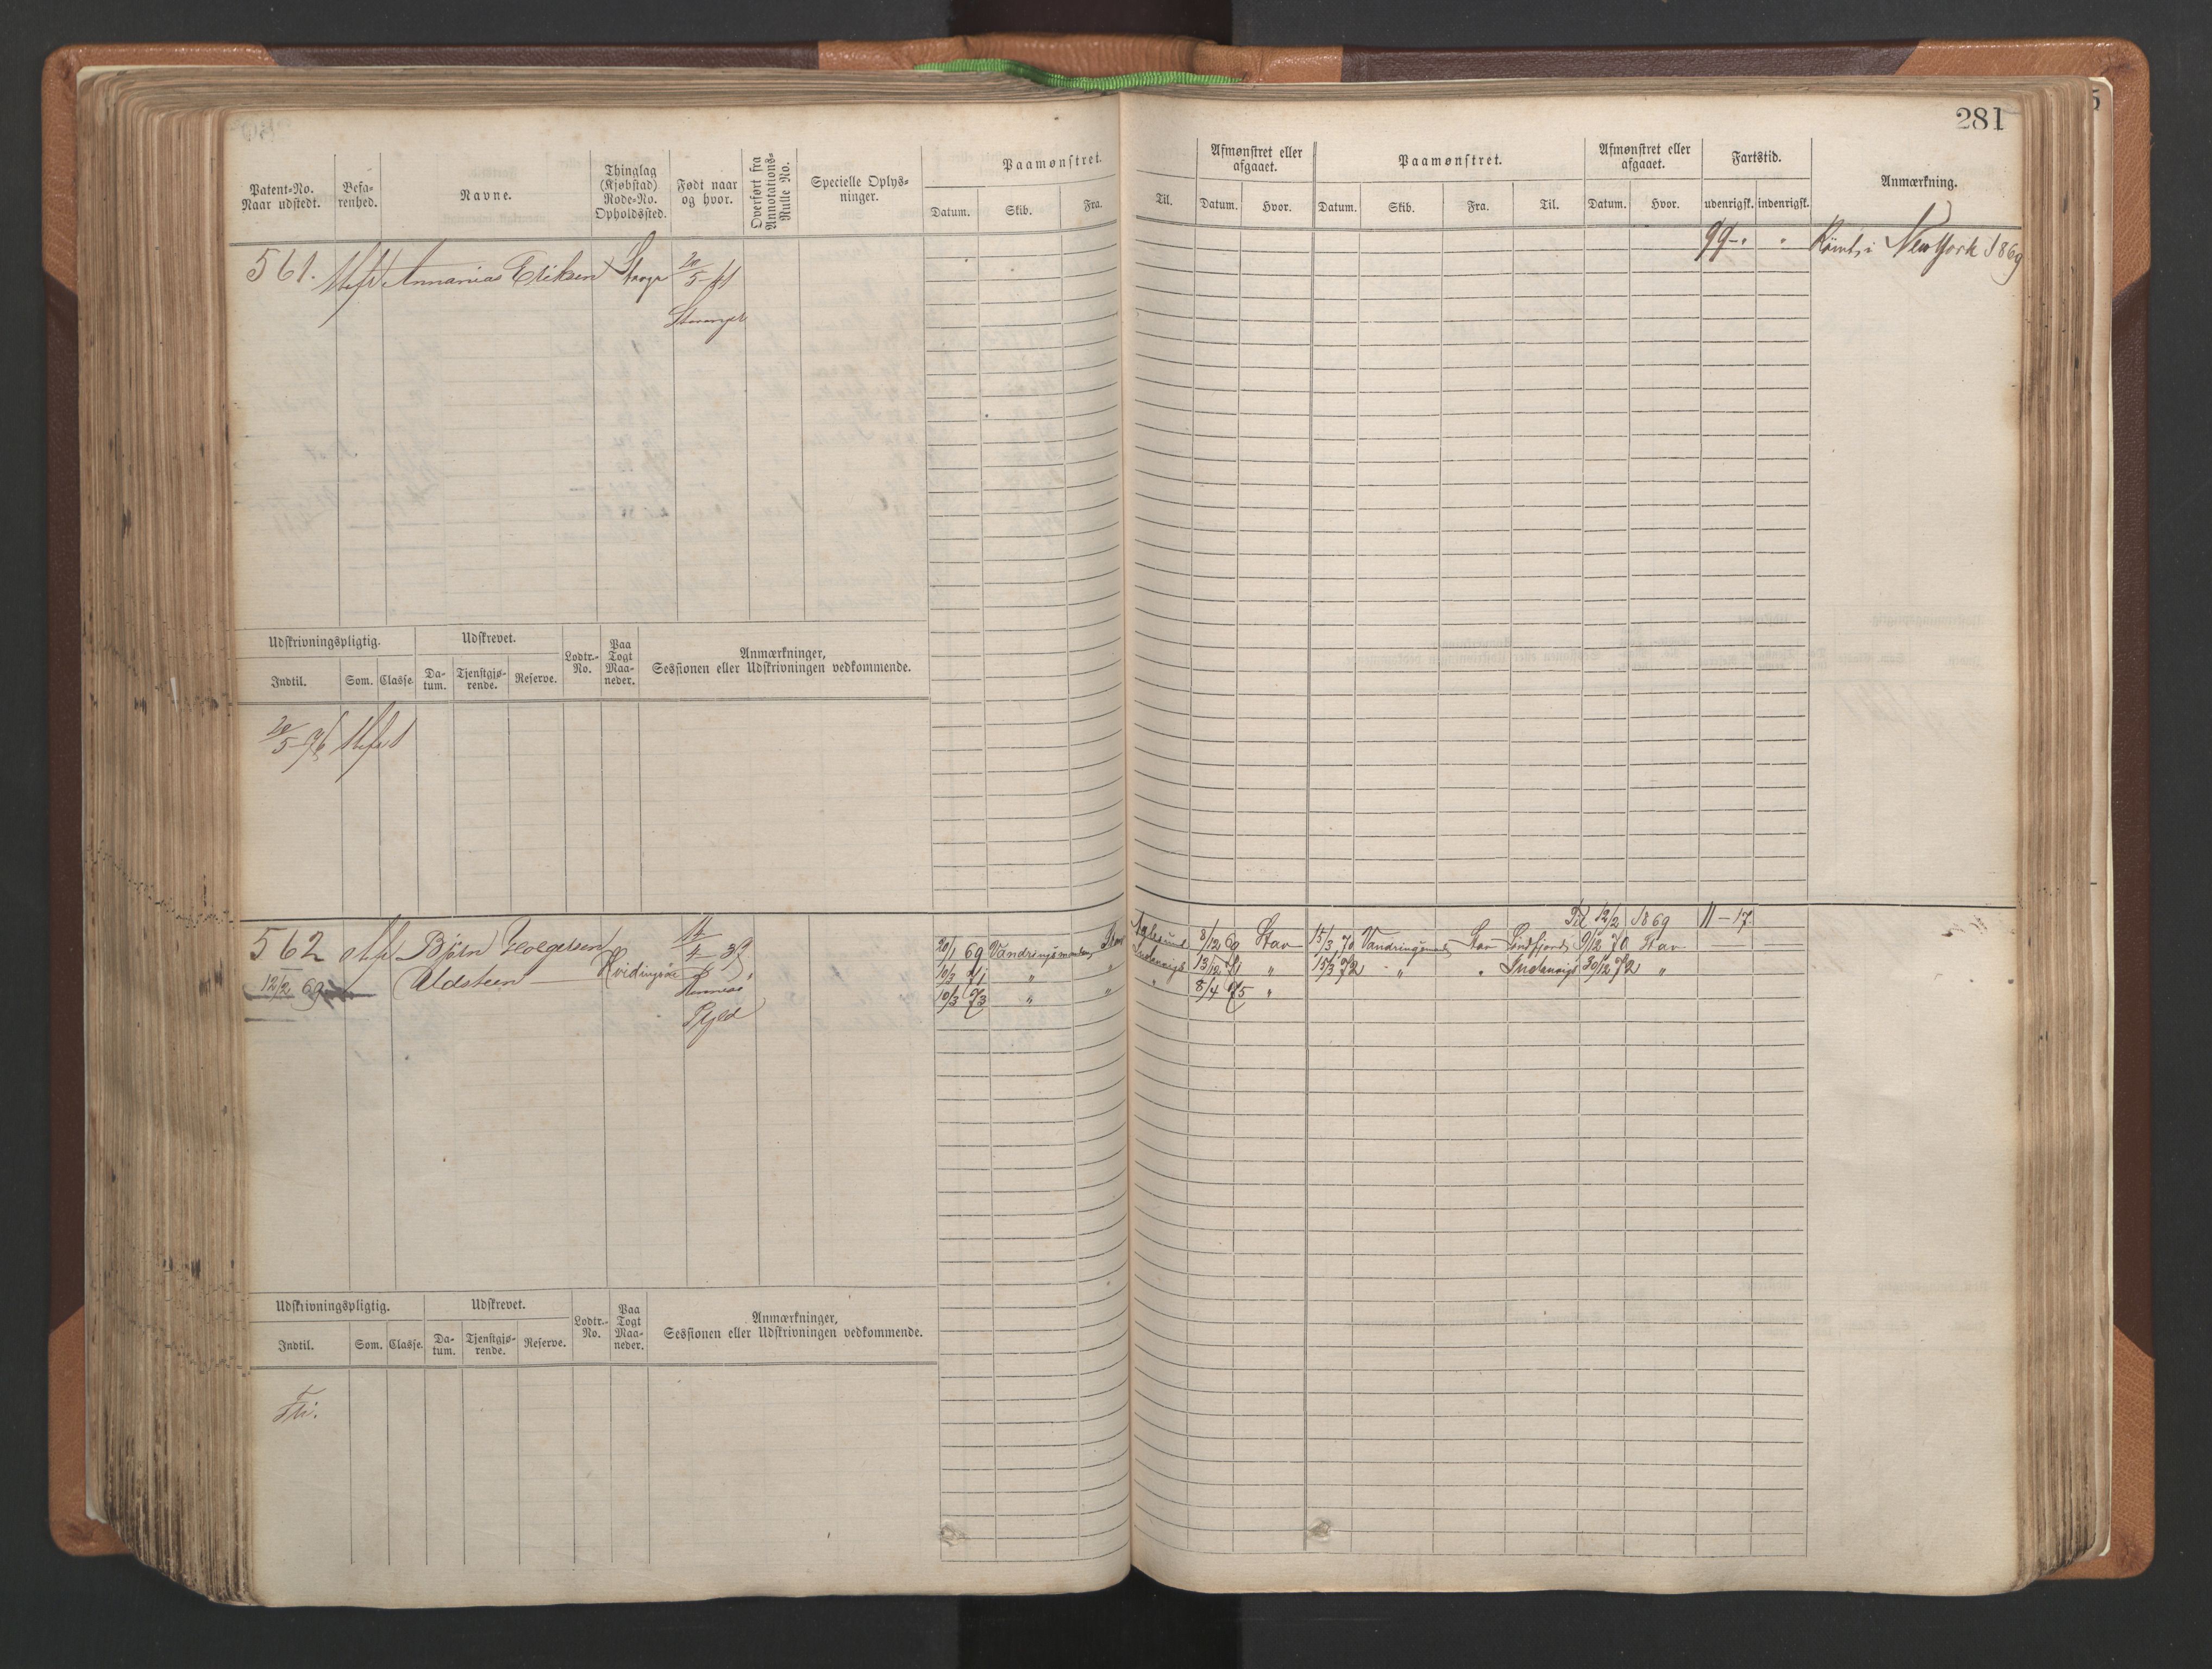 281
Patent-No. Naar udstedt.
Befa-
renhed.
Navne.
Thinglag
(Kjøbstad)
Rode-No.
Opholdssted.
Født naar
og hvor.
Overført fra
Annotations-
Rulle No.
Specielle Oplys-
ninger.
Paamønstret.
Datum. Skib. Fra.
Til.
Afmønstret eller
afgaaet.
Datum. Hvor.
Paamønstret.
Datum. Skib. Fra. Til.
Afmønstret eller
afgaaet.
Datum. Hvor.
Fartstid.
udenrigsk. indenrigsk.
Anmærkning.
561. Annanias Eriksen
20/5
99 - " " Rømt i New York 1869
Udskrivningspligtig. Udskrevet.
Lodtr.-
No.
Paa
Togt
Maa-
neder.
Anmærkninger,
Sessionen eller Udskrivningen vedkommende.
Indtil. Som. Classe.
Da-
tum.
Tjenstgjø-
rende.
Reserve.
20/5 76
Til 12/2 1869 11 - 17
562 Björn
Aldsteen
Hvidingsöe
12/2 69
20/1 69 8/12 69 Stav 15/3 70 Stav 9/12 70 Stav
10/3 71 " " Indenrigs 13/12 71 " 15/3 72 " " Indenrigs 30/12 72 "
10/3 73 " " " 8/4 75 "
Udskrivningspligtig. Udskrevet.
Lodtr.-
No.
Paa
Togt
Maa-
neder.
Anmærkninger,
Sessionen eller Udskrivningen vedkommende.
Indtil. Som. Classe.
Da-
tum.
Tjenstgjø-
rende.
Reserve.
Fri.